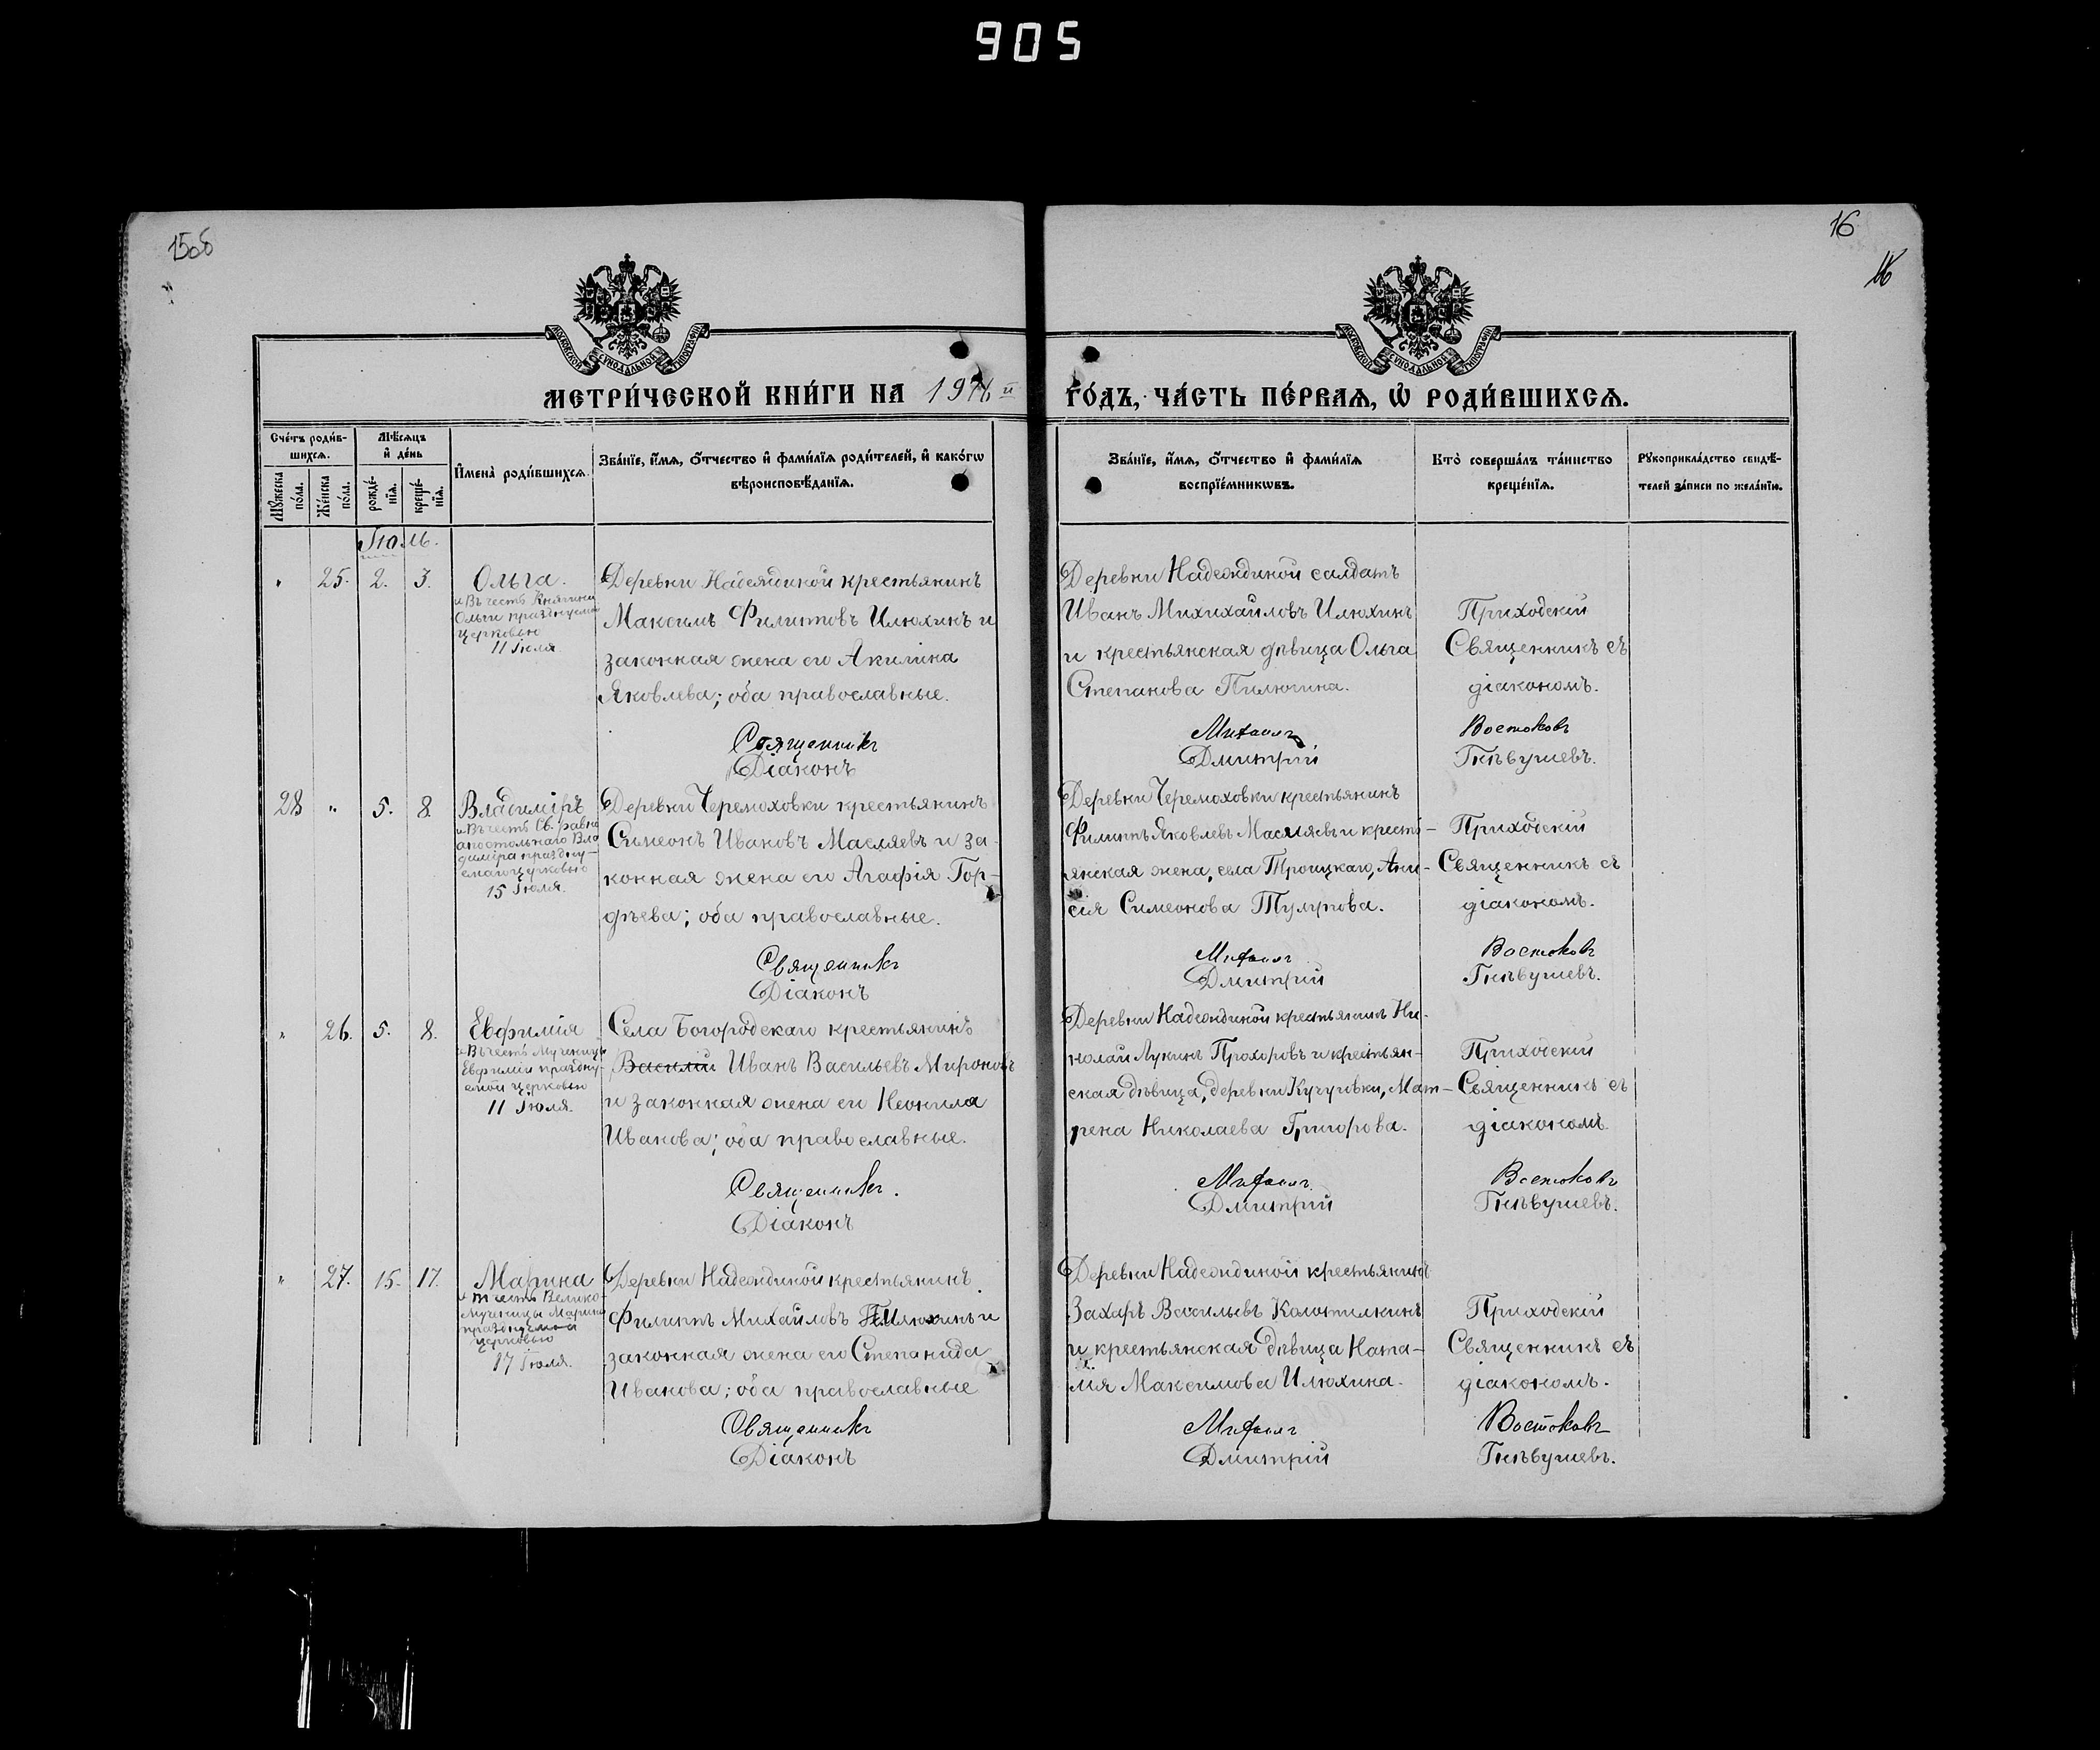 905
15об
16
16
МОСКОВСКОЙ СѴНОДАЛЬНОЙ ТИПОГРАФІИ
МОСКОВСКОЙ СѴНОДАЛЬНОЙ ТИПОГРАФІИ
МЕТРИ́ЧЕСКОЙ КНИ́ГИ НА 1916 й ГО́ДЪ, ЧА́СТЬ ПЕ́РВАѦ, Ѡ РОДИ́ВШИХСѦ.
Сче́тъ роди́в-
шихсѧ.
Мѣ́сѧцъ
и де́нь
Имена̀ роди́вшихсѧ.
Зва́нїе, и́мѧ, о́тчество и фами́лїѧ роди́телей, и како́гѡ
вѣроисповѣ́данїѧ.
Мꙋ́жеска
по́ла.
Же́нска
по́ла.
рожде́-
нїѧ.
креще́-
нїѧ.
Зва́нїе, и́мѧ, о́тчество и фами́лїѧ
воспрїе́мникѡвъ.
Кто̀ соверша́лъ та́инство
креще́нїѧ.
Рꙋкоприкла́дство свидѣ́-
телей за́писи по жела́нїю.
Іюль.
" 25. 2. 3. Ольга.
и Въ честь Княгини
Ольги празднуемой
церковью
11 Іюля.
Деревни Надеждиной крестьянинъ
Максимъ Филиповъ Илюхинъ и
законная жена его Акилина
Яковлева; оба православные.
Священникъ
Діаконъ
Деревни Надеждиной салдатъ
Иванъ Михихайловъ Илюхинъ
и крестьянская дѣвица Ольга
Степанова Пилюгина.
Михаилъ
Дмитрій
Приходскій
Священникъ съ
діакономъ.
Востоковъ
Гнѣвушевъ.
28 " 5. 8. Владиміръ
и Въ честь Св. равно
апостольнаго Вла
диміра праздну-
емаго церковью
15 Іюля.
Деревни Черемоховки крестьянинъ
Симеонъ Ивановъ Масляевъ и за-
конная жена его Агафія Гор-
дѣева; оба православные.
Священникъ
Діаконъ
Деревни Черемоховки крестьянинъ
Филиппъ Яковлевъ Масляевъ и кресть-
янская жена, села Троицкаго, Ани-
сія Симеонова Тулупова.
Михаилъ
Дмитрій
Приходскій
Священникъ съ
діакономъ.
Востоковъ
Гнѣвушевъ.
" 26. 5. 8. Евфимія
и Въ честь Мученицы
Евфиміи праздну-
емой церковью
11 Іюля.
Села Богородскаго крестьянинъ
Василій Иванъ Васильевъ Мироновъ
и законная жена его Неонила
Иванова; оба православные.
Священникъ.
Діаконъ
Деревни Надеждиной крестьянинъ Ни-
колай Лукинъ Прохоровъ и крестьян-
ская дѣвица, деревни Кучуевки, Мат-
рена Николаева Григорова.
Михаилъ
Дмитрій
Приходскій
Священникъ съ
діакономъ.
Востоковъ
Гнѣвушевъ.
" 27. 15. 17. Марина
въ честь Велико-
мученицы Марины
празднуемой
церковью
17 Іюля.
Деревни Надеждиной крестьянинъ
Филиппъ Михайловъ Илюхинъ и
законная жена его Степанида
Иванова; оба православные
Священникъ
Діаконъ
Деревни Надеждиной крестьянинъ
Захаръ Васильевъ Колотилкинъ
и крестьянская дѣвица Ната-
лія Максимова Илюхина.
Михаилъ
Дмитрій
Приходскій
Священникъ съ
діакономъ.
Востоковъ
Гнѣвушевъ.